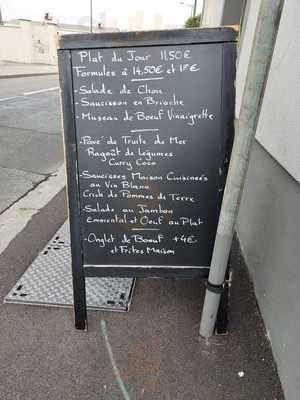 Plat du Jour 11,50€
Formules à 14,50€ et 17€
-Salade de Chou
-Saucisson en Brioche
-Museau de Boeuf Vinaigrette
-Pavé de Truite de Mer
Ragoût de Légumes
Curry Coco
-Saucisses Maison Cuisineés
au Vin Blanc
Crick de Pommes de Terre
-Salade au Jambon
Emmental et Oeuf au Plat
-Onglet de Boeuf +4€
et Frites Maison